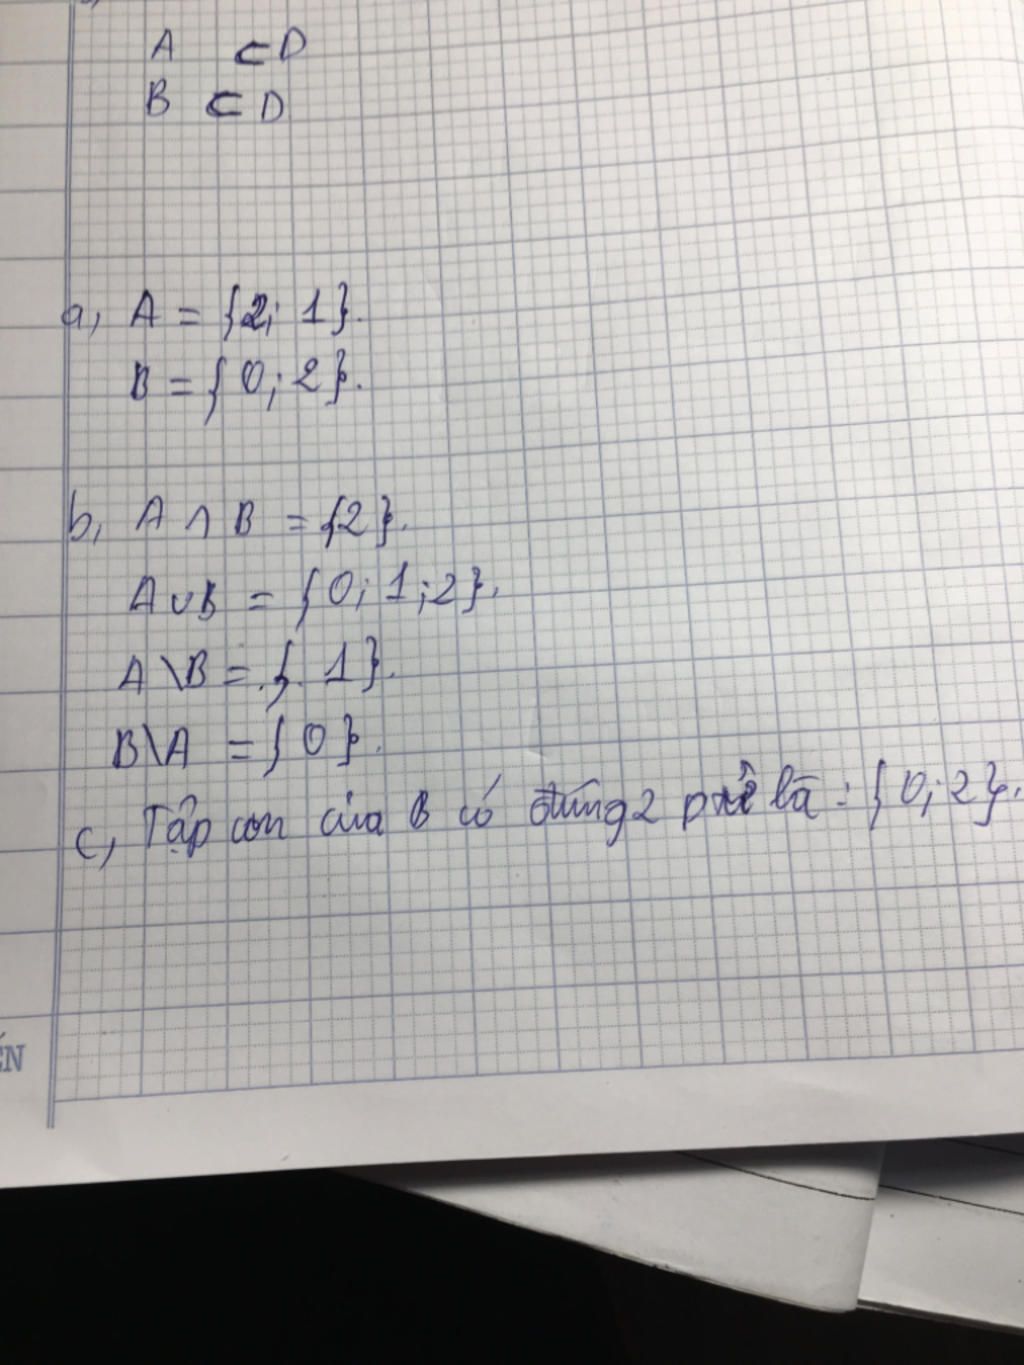 A ⊂ D
B ⊂ D
a, A = {2; 1}.
B = {0; 2}.
b, A ∩ B = {2}.
A ∪ B = {0; 1; 2}.
A \ B = { 1}.
B \ A = { 0 }.
c, Tập con của B có đúng 2 ptử là : {0; 2}.
ẾN